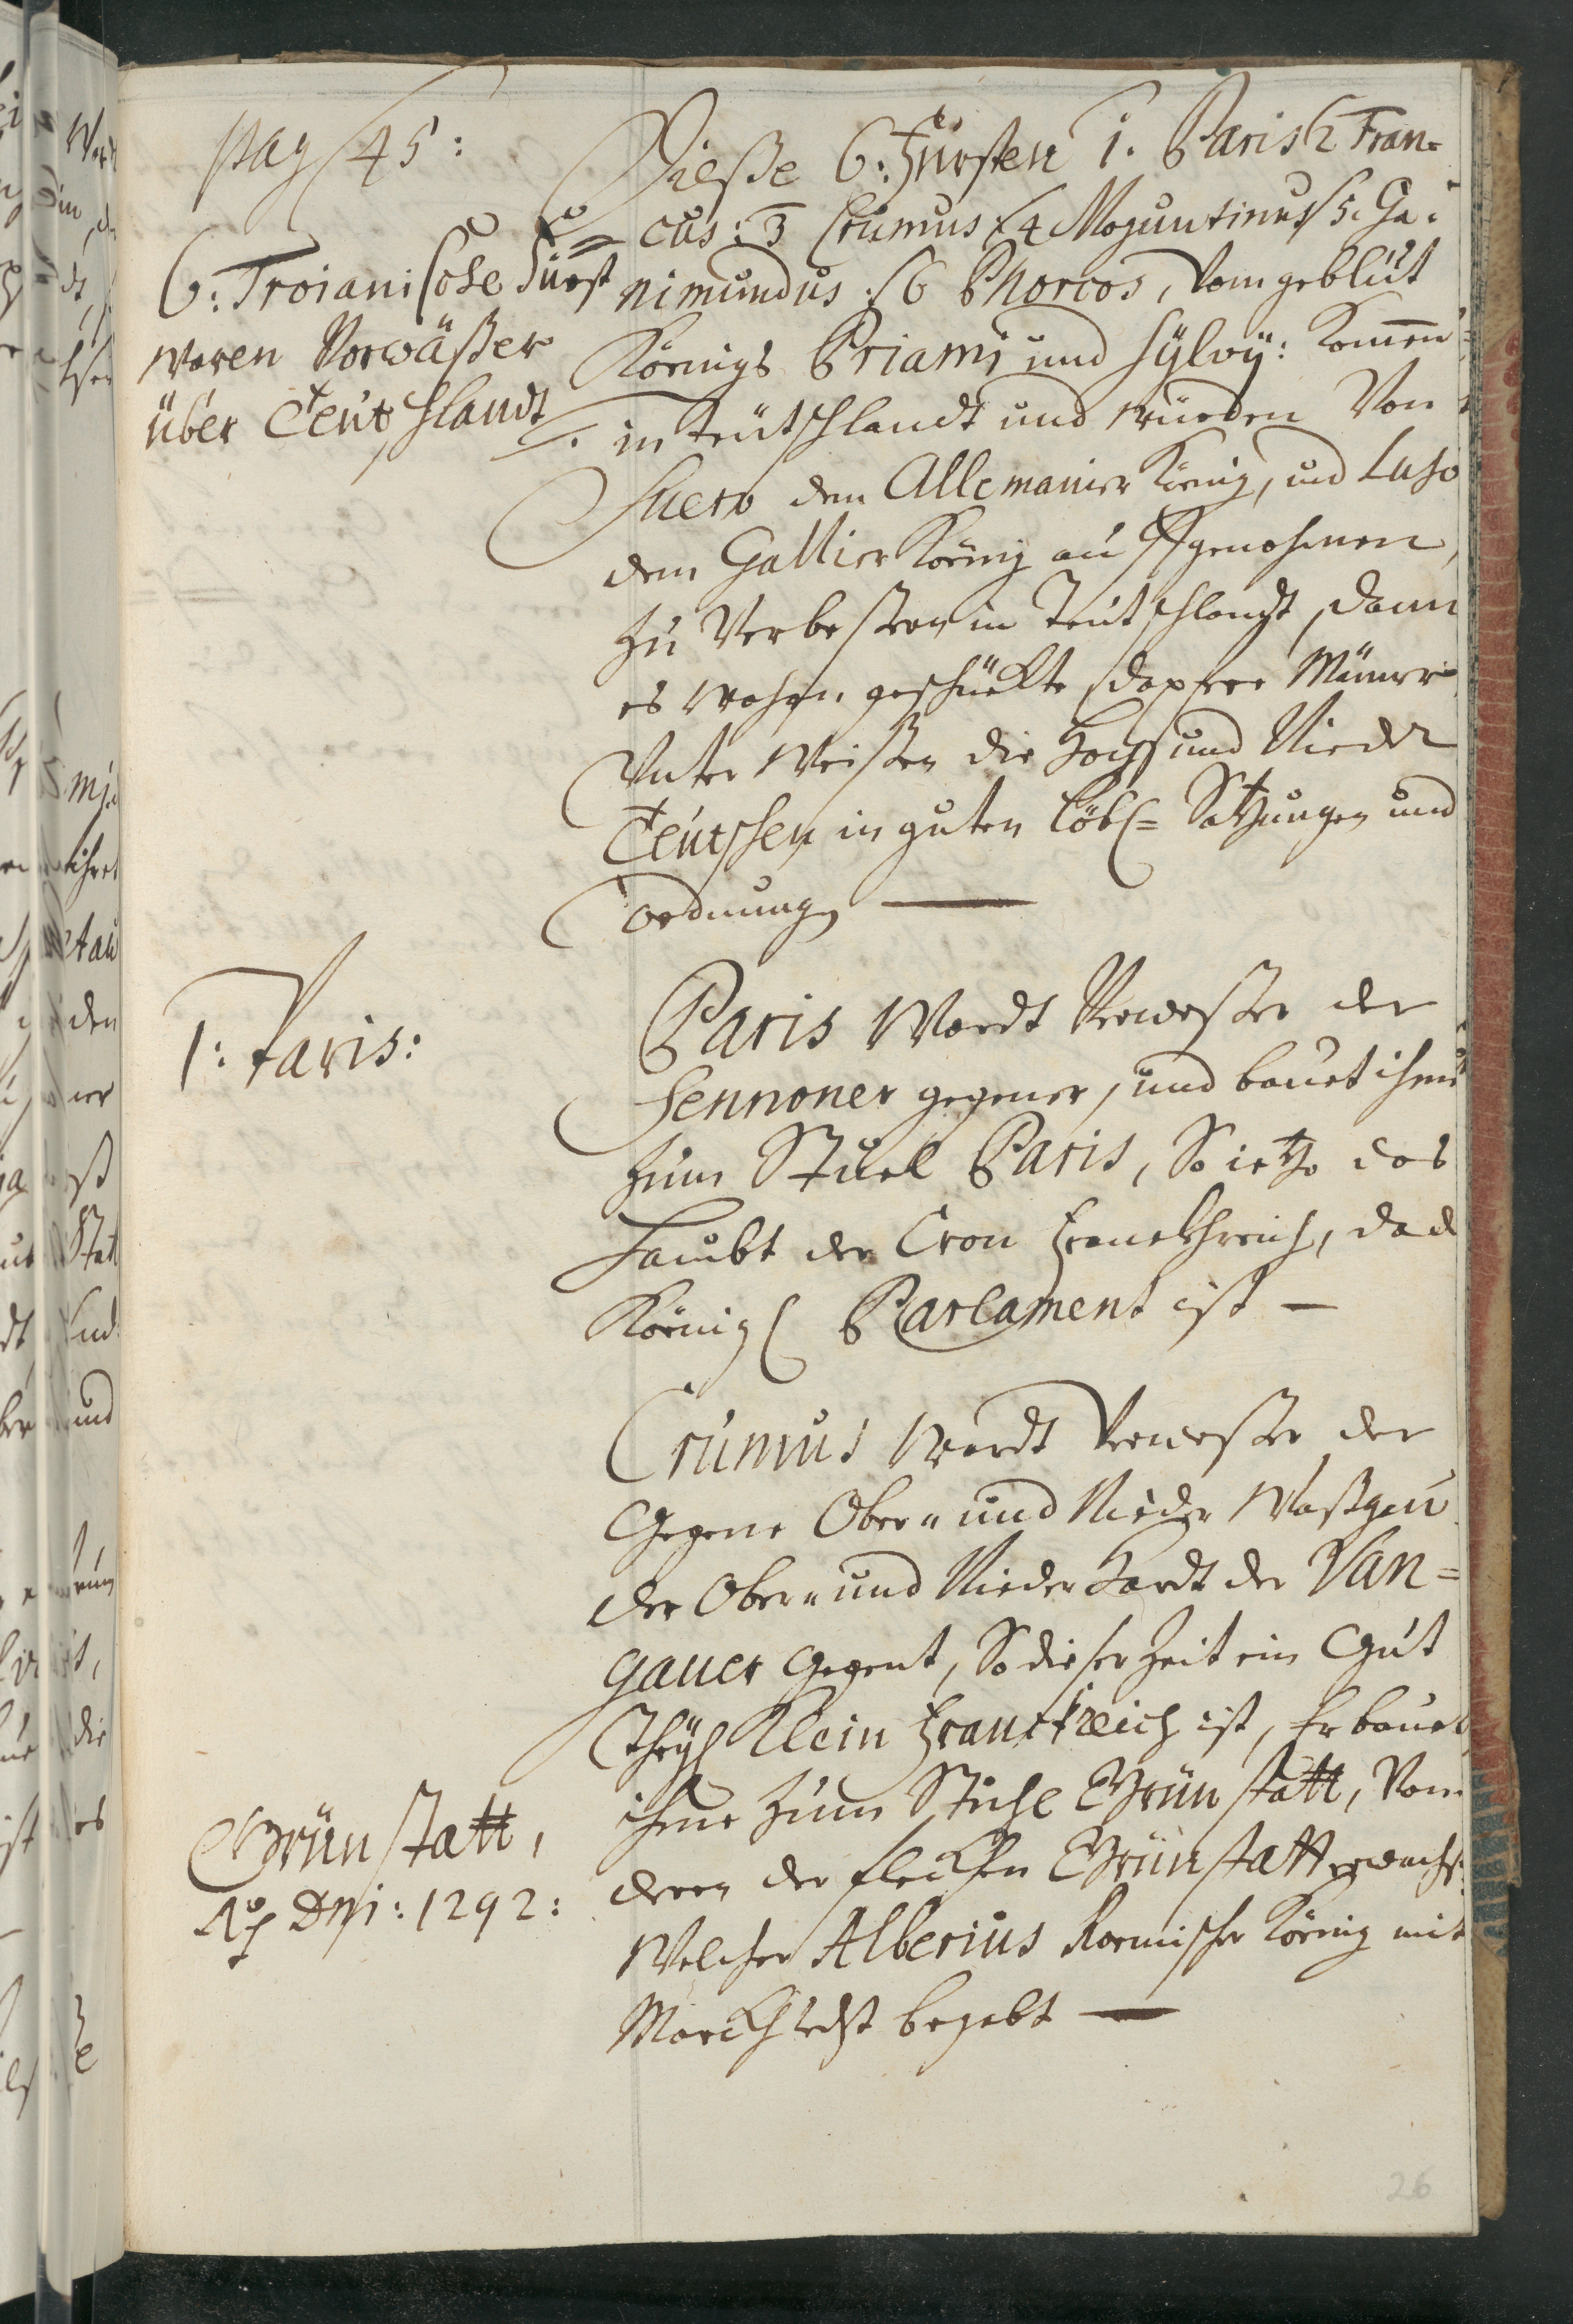 pag 45:
6: Troianische Fürst
waren Vorwäßer
über Teutschlandt
Dieße 6: Fürsten 1. Paris 2 Fran=
cus: 3 Crumus 4 Moguntinus 5. Ga=
nimundus: 6 Phorcos, vom geblüt
Königs Priami und Sylvÿ: komen
in Teutschlandt und wurden Von
Suero dem Allemanier König, und Laso
dem Gallier König auffgenohmen,
zu Verbeßern in Teutschlandt, dann
es wahren geschückte, dapfere Männer
Unter Weißen die Hoch und Nieder
Teutschen in guten löbl= Satzungen und
ordnungen —
1: Paris:
Paris Wardt Verweßer der
Sennoner gegener, und bauet ihme
zum Stuel Paris, So ietzo das
Haubt der Cron Franckhreich, da d
Königl Parlament ist —
Crumus Wardt Verweßer der
Gegene Ober= und Nieder Waßgau
der Ober= und Nieder Hardt der Van=
gauer Gegent, So dieser Zeit ein Gut
Theyl Klein Franckreich ist, Er bauet
ihme zum Stuhl Grünstatt, Von
deren der flecken Grünstatt erwachs.
Welchen Alberius Roemischer König mit
Marckhrecht begabt —
Grünstatt,
Ao Dni: 1292:
26